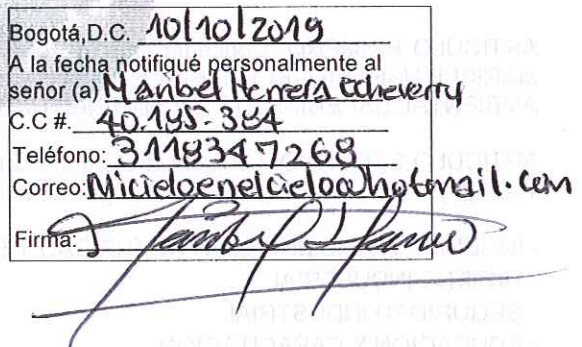 Bogotá, D.C. 10/10/2019
A la fecha notifiqué personalmente al
señor (a) Maribel Herrera Echeverry
C.C #. 40.185-384
Teléfono: 3118347268
Correo: Micieloenelcielo@hotmail.com
Firma: